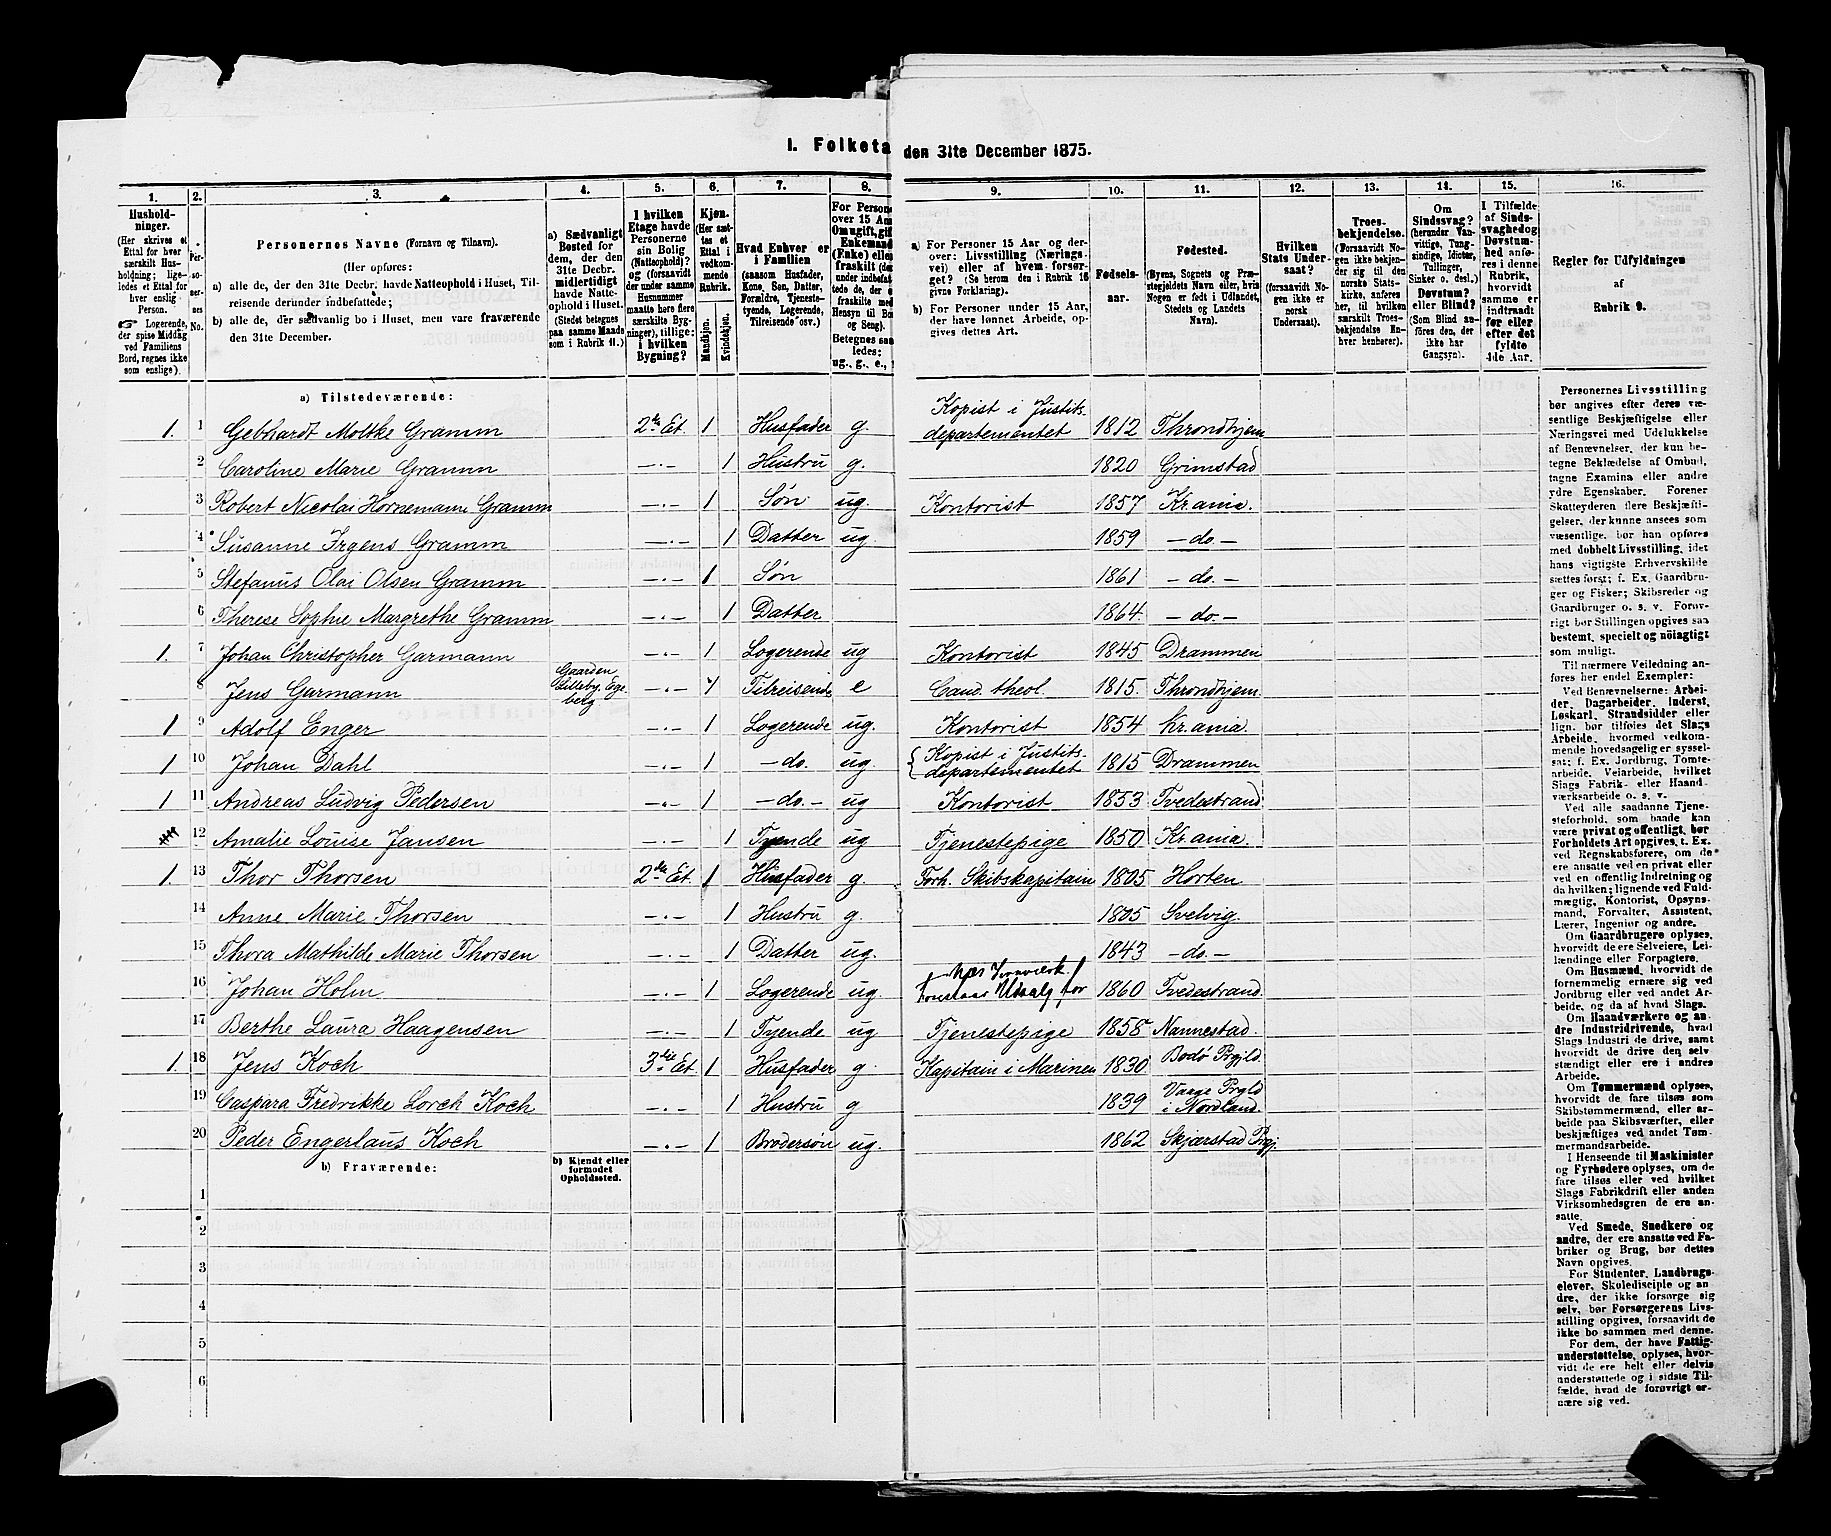 I. Folketa den 31te December 1875.
1. 2. 3. 4. 5. 6. 7. 8. 9. 10. 11. 12. 13. 14. 15. 16.
Hushold-
ninger.
(Her skrives et
Ettal for hver
særskilt Hus-
holdning; lige-
ledes et Ettal for
hver enslig
Person.
☞ Logerende,
der spise Middag
ved Familiens
Bord, regnes ikke
som enslige).
Per-
so-
ner-
nes
No.
Personernes Navne (Fornavn og Tilnavn).
(Her opføres:
a) alle de, der den 31te Decbr. havde Natteophold i Huset, Til-
reisende derunder indbefattede;
b) alle de, der sædvanlig bo i Huset, men vare fraværende
den 31te December.
a) Sædvanligt
Bosted for
dem, der den
31te Decbr.
midlertidigt
havde Natte-
ophold i Huset.
(Stedet betegnes
paa samme Maade
som i Rubrik 11.)
I hvilken
Etage havde
Personerne
sin Bolig
(Natteophold)?
og (forsaavidt
der under samme
Husnummer
maatte høre flere
særskilte Byg-
ninger), tillige:
i hvilken
Bygning?
Kjøn.
(Her sæt-
tes et
Ettal i
vedkom-
mende
Rubrik.
Mandkjøn.
Kvindekjøn.
Hvad Enhver er
i Familien
(saasom Husfader,
Kone, Søn, Datter,
Forældre, Tjeneste-
tyende, Logerende,
Tilreisende osv.)
For Persone
over 15 Aar
Om ugift, gif
Enkemand
(Enke) elle
fraskilt (de
under indbefat
tede de, der e
fraskilte med
Hensyn til Bo
og Seng).
Betegnes saa
ledes:
ug., g., e.,
a) For Personer 15 Aar og der-
over: Livsstilling (Nærings-
vei) eller af hvem forsør-
get? (Se herom den i Rubrik 16
givne Forklaring).
b) For Personer under 15 Aar,
der have lønnet Arbeide, op-
gives dettes Art.
Fødsels-
aar.
Fødested.
(Byens, Sognets og Præ-
stegjeldets Navn eller, hvis
Nogen er født i Udlandet,
Stedets og Landets
Navn).
Hvilken
Stats Under-
saat?
(forsaavidt No-
gen ikke er
norsk
Undersaat).
Troes-
bekjendelse.
(Forsaavidt No-
gen ikke bekjen-
der sig til den
norske Stats-
kirke, anføres
her, til hvilken
særskilt Troes-
bekjendelse En-
hver henhører).
Om
Sindssvag?
(herunder Van-
vittige, Tung-
sindige, Idioter,
Tullinger,
Sinker o. desl.)
Døvstum?
eller Blind?
(Som Blind an-
føres den, der
ikke har
Gangsyn).
I Tilfælde
af Sinds-
svaghed og
Døvstum-
hed anfø-
res i denne
Rubrik,
hvorvidt
samme er
indtraadt
før eller
efter det
fyldte
4de Aar.
Regler for Udfyldningen
af
Rubrik 9.
a) Tilstedeværende:
1. 1 Gebhardt Moltke Gramm 2den Et. 1 Husfader g. Kopist i Justits-
departementet 1812 Throndhjem
2 Caroline Marie Gramm — 1 Hustru g. 1820 Grimstad
3 Robert Nicolai Hornemann Gramm — 1 Søn ug. Kontorist 1857 Kr.ania.
4 Susanne Irgens Gramm — 1 Datter ug. 1859 — do. —
5 Stefanus Olai Olsen Gramm — 1 Søn 1861 — do. —
6 Therese Sophie Margrethe Gramm — 1 Datter 1864. — do. —
1. 7 Johan Christopher Garmann — 1 Logerende ug Kontorist 1845 Drammen
8 Jens Garmann Gaarden
Lilleby, Ege-
berg — 1 Tilreisende e Cand. theol. 1815. Throndhjem
1 9 Adolf Enger — 1 Logerende ug. Kontorist 1854 Kr.ania.
1 10 Johan Dahl — 1 — do. ug. Kopist i Justits-
departementet 1815 Drammen
1 11 Andreas Ludvig Pedersen — 1 — do. — ug Kontorist 1853 Tvedestrand
12 Amalie Louise Jansen — 1 Tyende ug Tjenestepige 1850 Kr.ania.
1. 13 Thor Thorsen 2den Et. 1 Husfader g. Forh. Skibskapitain 1805 Horten
14 Anne Marie Thorsen — 1 Hustru g. 1805 Svelvig.
15 Thora Mathilde Marie Thorsen — 1 Datter ug. 1843 — do. —
16 Johan Holm — 1 Logerende ug. Udsalg for
Næs Jernværk 1860 Tvedestrand.
17 Berthe Laura Haagensen — 1 Tyende ug Tjenestepige 1858 Nannestad.
1. 18 Jens Koch 3die Et. 1 Husfader g. Kapitain i Marinen 1830 Bodø Prgjld.
19 Caspara Fredrikke Lorch Koch — 1 Hustru g 1839 Vaage Prgld
i Nordland.
20 Peder Engerlaus Koch — 1 Brodersøn ug. 1862 Skjærstad Prgj.
b) Fraværende:
b) Kjendt eller
formodet
Opholdssted.
1
2
3
4
5
6
Personernes Livsstilling
bør angives efter deres væ-
sentlige Beskjæftigelse eller
Næringsvei med Udelukkelse
af Benævnelser, der kun be-
tegne Beklædelse af Ombud,
tagne Examina eller andre
ydre Egenskaber. Forener
Skatteyderen flere Beskjæfti-
gelser, der kunne ansees som
væsentlige, bør han opføres
med dobbelt Livsstilling, idet
hans vigtigste Erhvervskilde
sættes først; f. Ex. Gaardbru-
ger og Fisker; Skibsreder og
Gaardbruger o. s. v. Forøv-
rigt bør Stillingen opgives saa
bestemt, specielt og nöiagtigt
som muligt.
Til nærmere Veiledning an-
føres her endel Exempler:
Ved Benævnelserne: Arbei-
der, Dagarbeider, Inderst,
Løskarl, Strandsidder eller
lign. bør tilføies det Slags
Arbeide, hvormed vedkom-
mende hovedsagelig er syssel-
sat; f. Ex. Jordbrug, Tomte-
arbeide, Veiarbeide, hvilket
Slags Fabrik- eller Haand-
værksarbeide o. s. v.
Ved alle saadanne Tjene-
steforhold, som baade kan
være privat og offentligt, bør
Forholdets Art opgives, t. Ex.
ved Regnskabsførere, om de
ere ansatte ved en privat eller
ved en offentlig Indretning og
da hvilken; lignende ved Fuld-
mægtig, Kontorist, Opsyns-
mand, Forvalter, Assistent,
Lærer, Ingeniør og andre.
Om Gaardbrugere oplyses,
hvorvidt de ere Selveiere, Lei-
lændinge eller Forpagtere.
Om Husmænd, hvorvidt de
fornemmelig ernære sig ved
Jordbrug eller ved andet Ar-
beide, og da af hvad Slags.
Om Haandværkere og an-
dre Industridrivende, hvad
Slags Industri de drive, samt
hvorvidt de drive den selv-
stændigt eller ere i andres
Arbeide.
Om Tømmermænd oplyses,
hvorvidt de fare tilsøs som
Skibstømmermænd, eller ar-
beide paa Skibsværfter, eller
beskjæftiges ved andet Tøm-
mermandsarbeide.
I Henseende til Maskinister
og Fyrbødere oplyses, om de
fare tilsøs eller ved hvilket
Slags Fabrikdrift eller anden
Virksomhedsgren de ere an-
satte.
Ved Smede, Snedkere og
andre, der ere ansatte ved Fa-
briker og Brug, bør dettes
Navn opgives.
For Studenter, Landbrugs-
elever, Skoledisciple og an-
dre, der ikke forsørge sig
selv, bør Forsørgerens Livs-
stilling opgives, forsaavidt de
ikke bo sammen med denne.
For dem, der have Fattig-
understøttelse, oplyses, hvor-
vidt de ere helt eller delvis
understøttede og i sidste Til-
fælde, hvad de forøvrigt er-
nære sig ved.